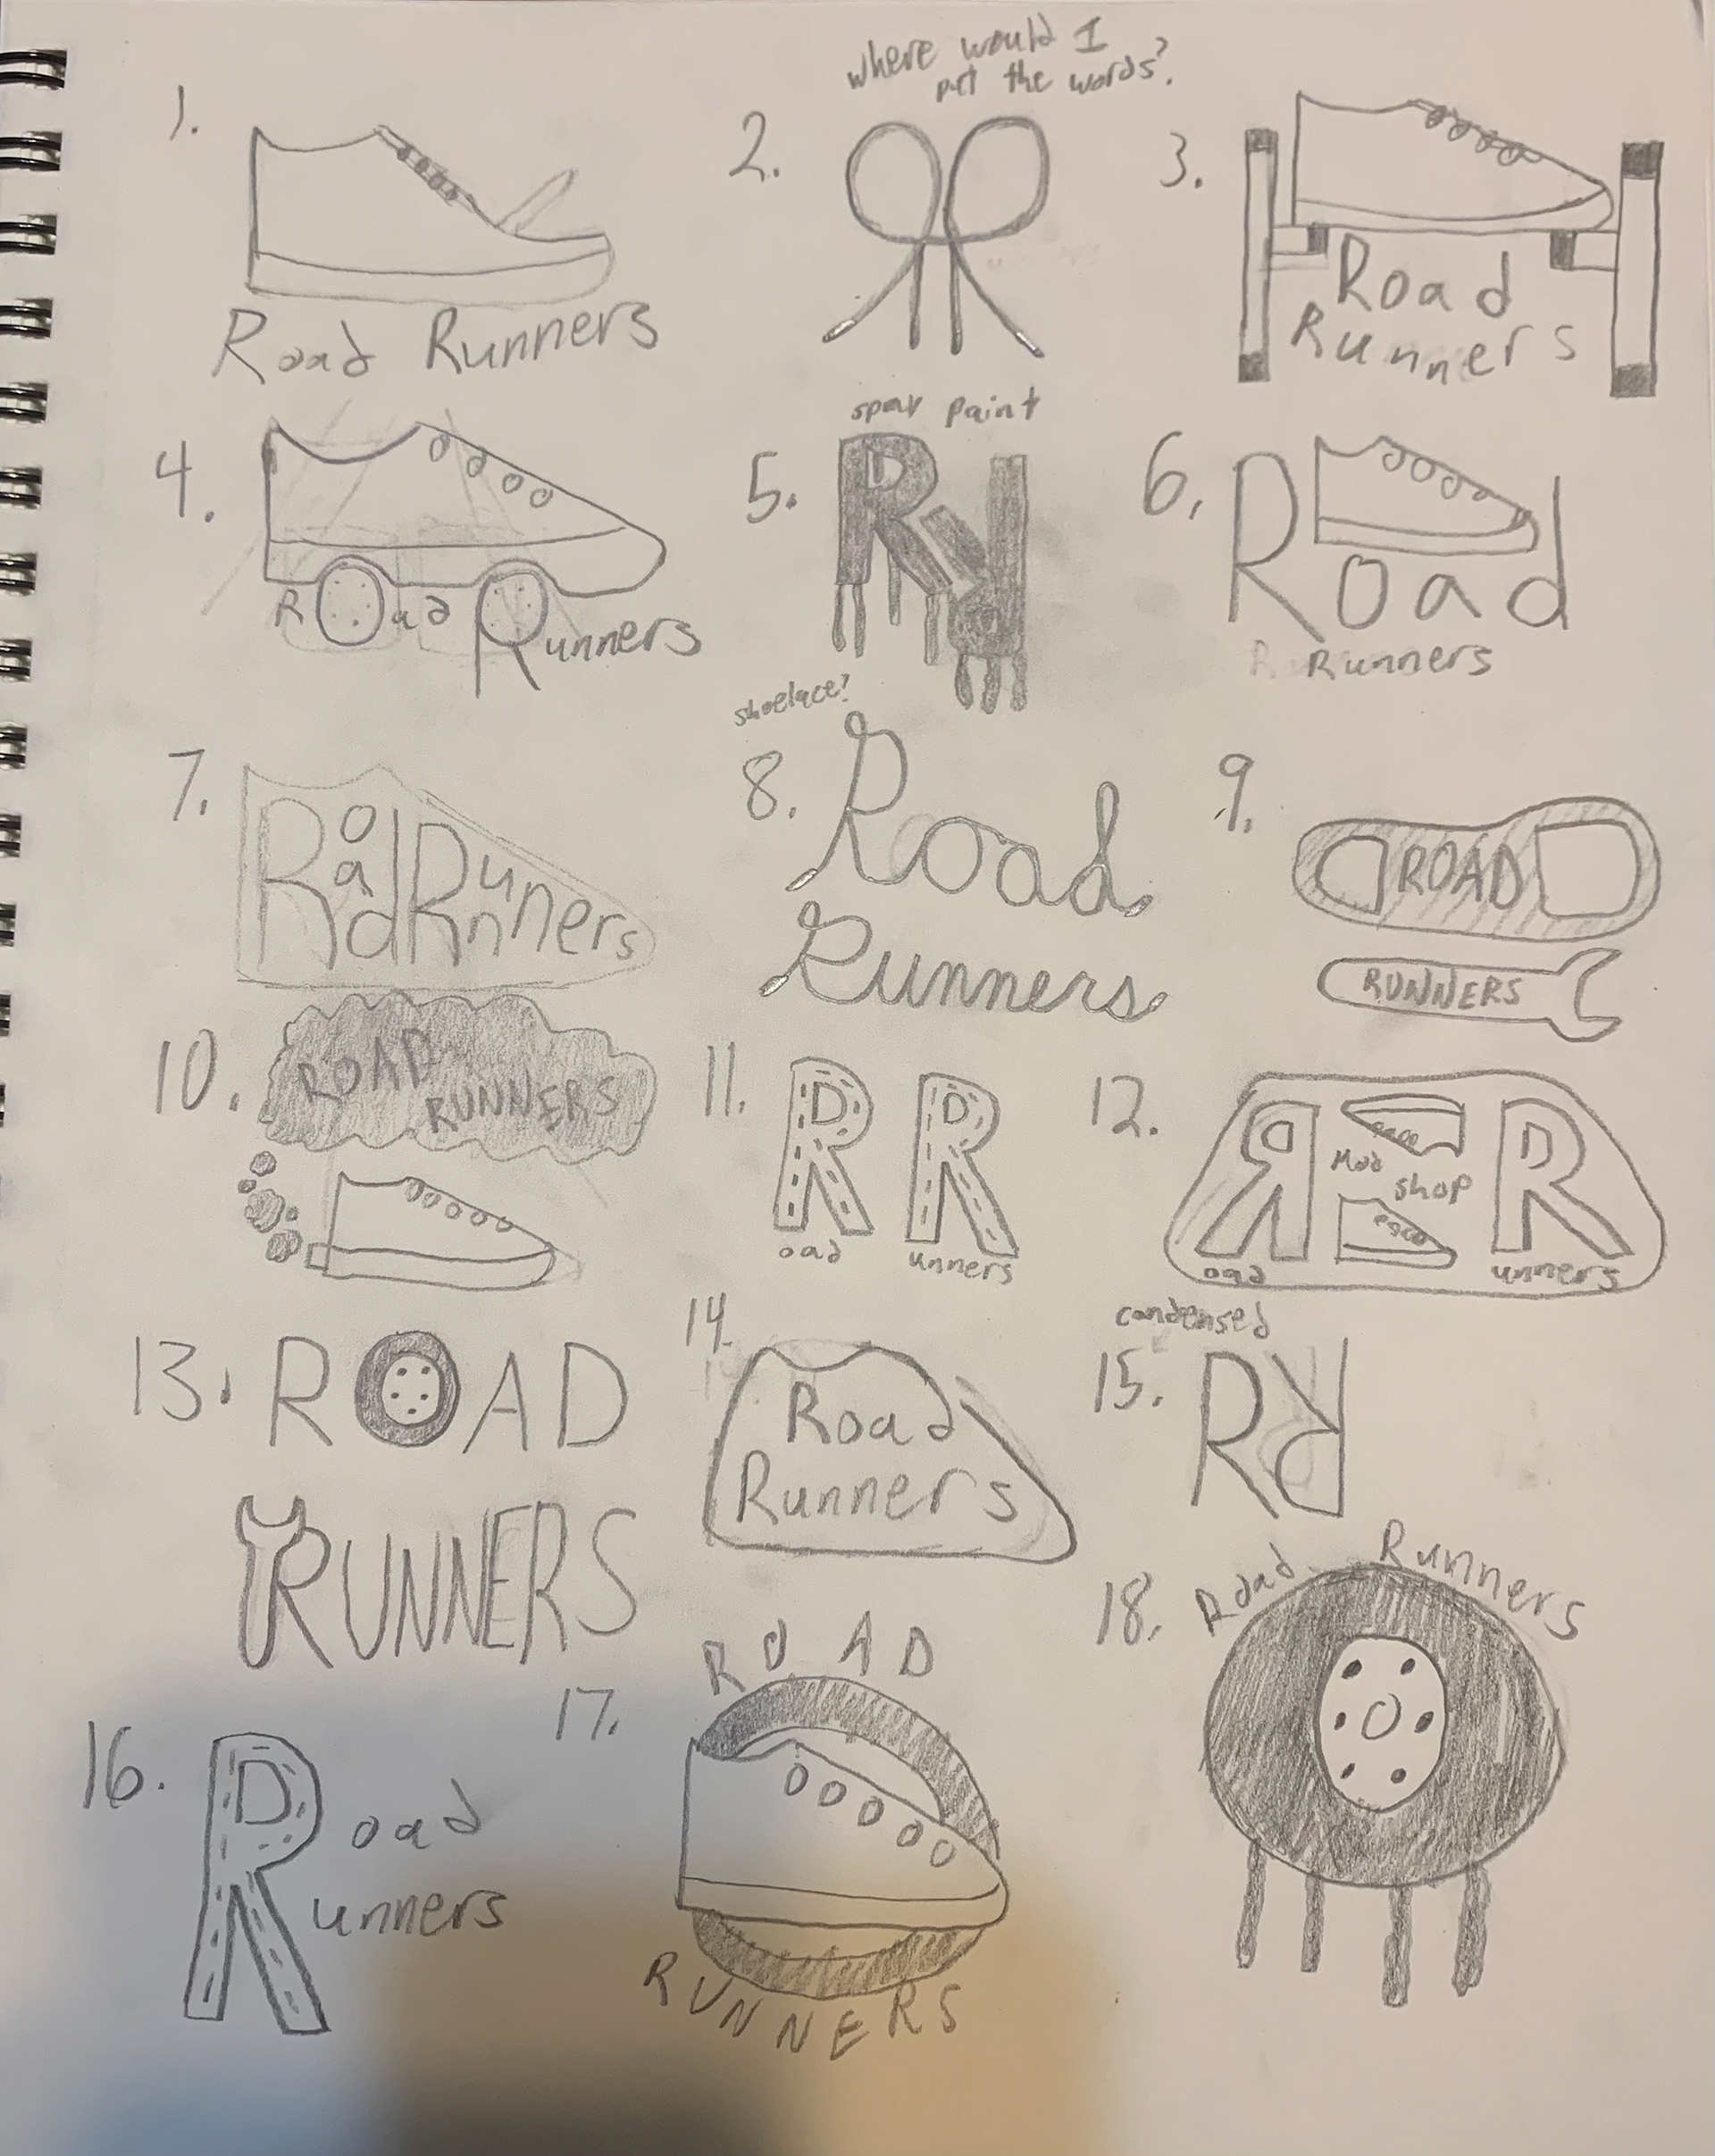 where would I
put the words?
1.
Road Runners
2.
RR
3.
Road
Runners
4.
Road Runners
5.
spay paint
Rd
6.
Road
Runners
7.
Road Runners
8.
shoelace?
Road
Runners
9.
ROAD
RUNNERS
10.
ROAD
RUNNERS
11.
R R
oad unners
12.
R R
Mod
shop
oad unners
13.
ROAD
RUNNERS
14.
Road
Runners
15.
condensed
Rd
16.
Road
unners
17.
ROAD
RUNNERS
18.
Road Runners